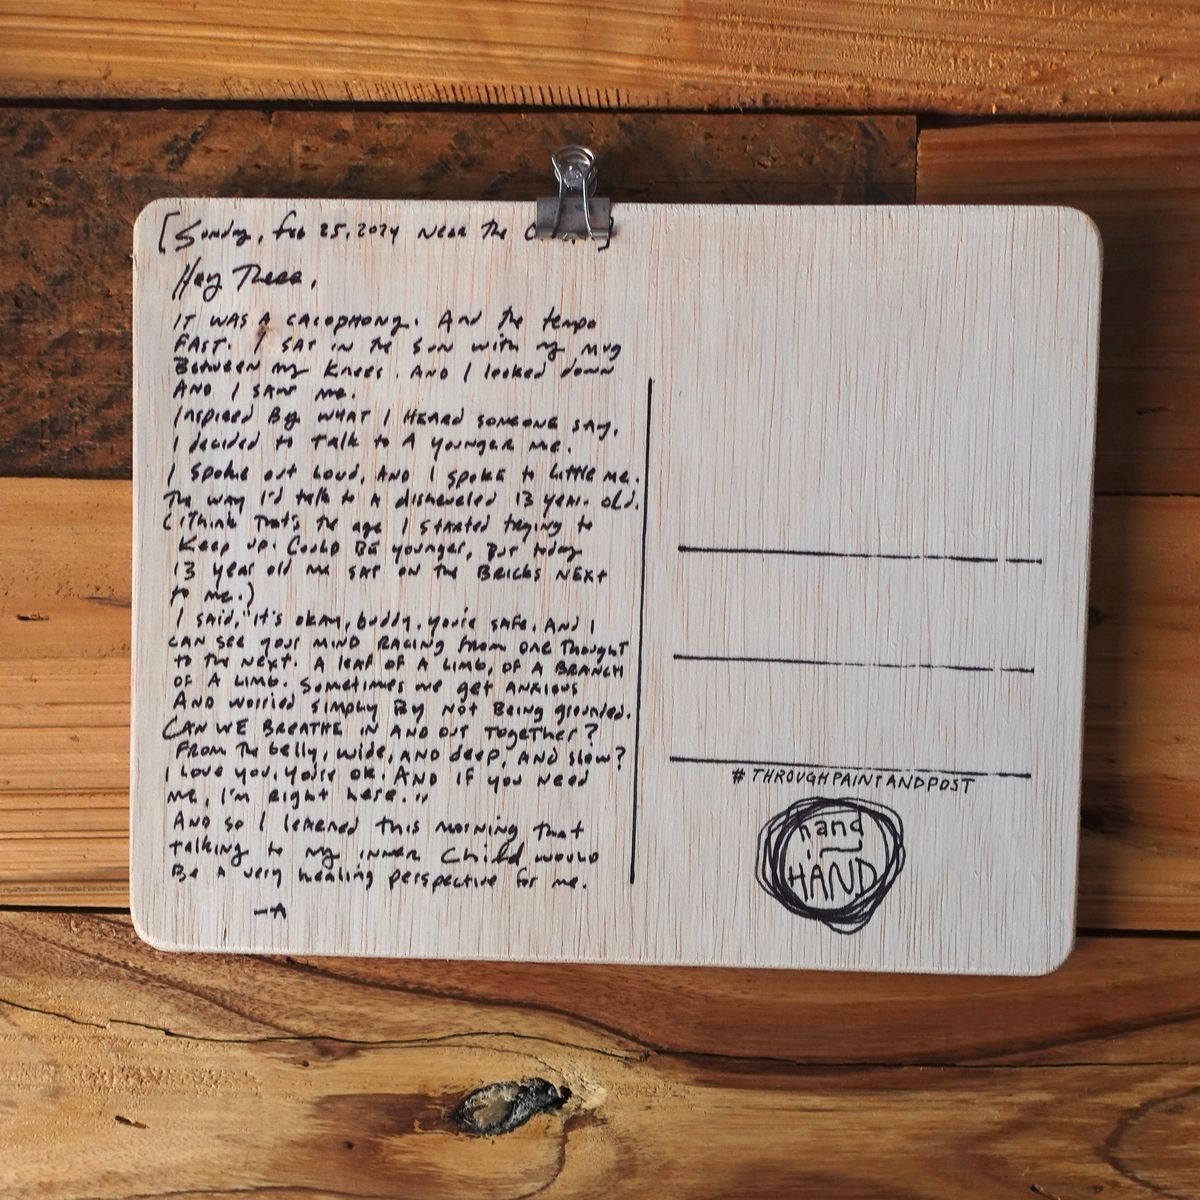 [Sunday, Feb 25, 2024 Near the
Hey There,
IT WAS A CACOPHONY. And the tempo
FAST. I SAT IN the SUN with my mug
Between my knees. AND I looked down
AND I SAW me.
Inspired By WHAT I HEARD someone say,
I decided to talk to A younger me.
I spoke out loud, AND I spoke to little me.
The way I'd talk to A disheveled 13 year old.
(I Think that's the age I started trying to
Keep up. Could BE younger, But today
13 year old me sat on the Bricks NEXT
to me.)
I said, "It's okay, buddy, you're safe. And I
CAN see your MIND RACING from one thought
to the next. A leaf of A limb, of A BRANCH
of A limb. Sometimes we get anxious
And worried simply By not Being grounded.
CAN WE BREATHE IN AND OUT together?
From the belly, wide, AND deep, AND slow?
I love you, you're ok. AND if you need
me, I'm right here."
And so I learned this morning that
talking to my inner child would
Be A very healing perspective for me.
—A
#THROUGHPAINTANDPOST
hand
in
HAND